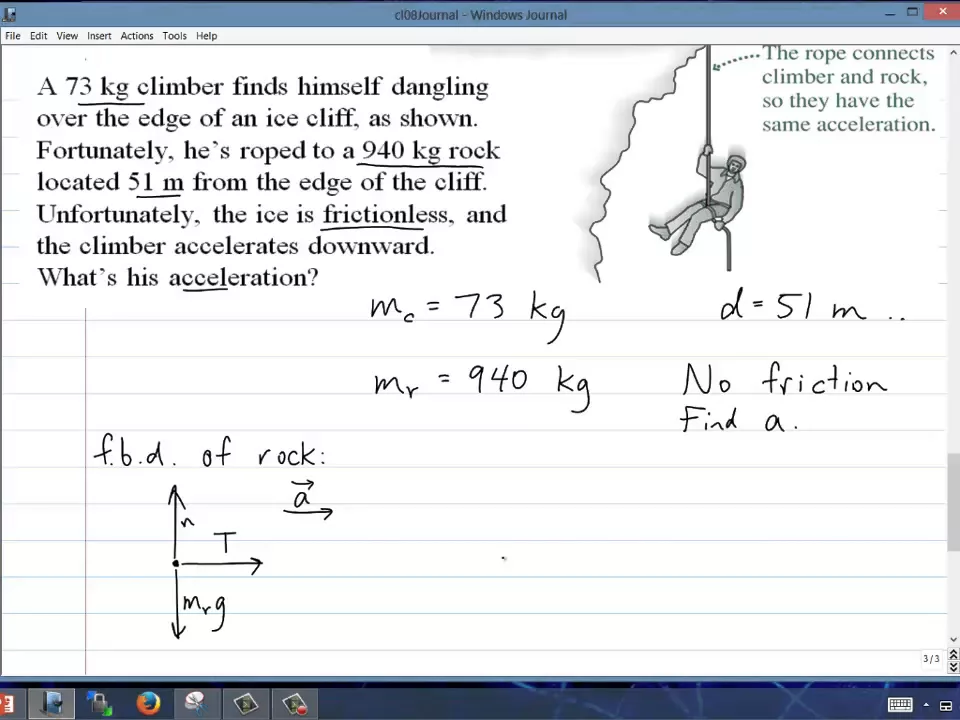 cl08Journal - Windows Journal
File Edit View Insert Actions Tools Help
A 73 kg climber finds himself dangling
over the edge of an ice cliff, as shown.
Fortunately, he's roped to a 940 kg rock
located 51 m from the edge of the cliff.
Unfortunately, the ice is frictionless, and
the climber accelerates downward.
What's his acceleration?
The rope connects
climber and rock,
so they have the
same acceleration.
m_c = 73 kg
d = 51 m ..
m_r = 940 kg
No friction
Find a.
f.b.d. of rock:
a
n
T
m_r g
3/3